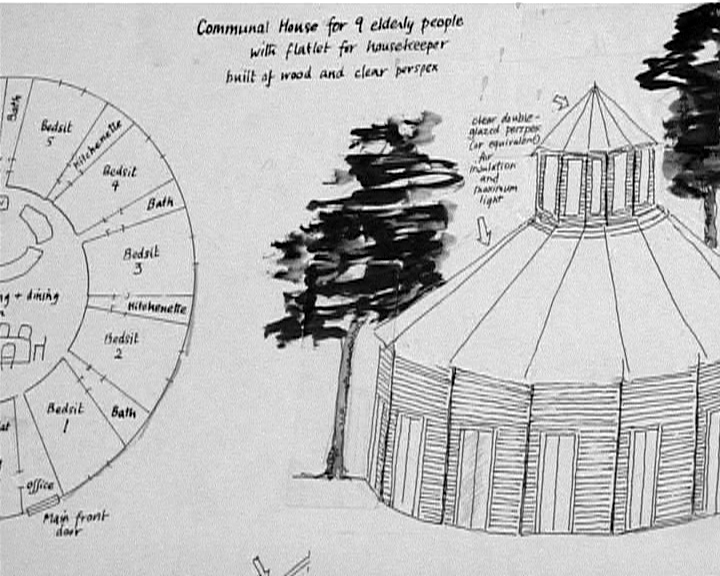 Communal House for 9 elderly people
with flatlet for housekeeper
built of wood and clear perspex
clear double-
glazed perspex
(or equivalent)
for
insulation
and
maximum
light
Bath
Bedsit
5
Kitchenette
Bedsit
4
Bath
Bedsit
3
+ dining
Kitchenette
Bedsit
2
Bedsit
1
Bath
Office
Main front
door